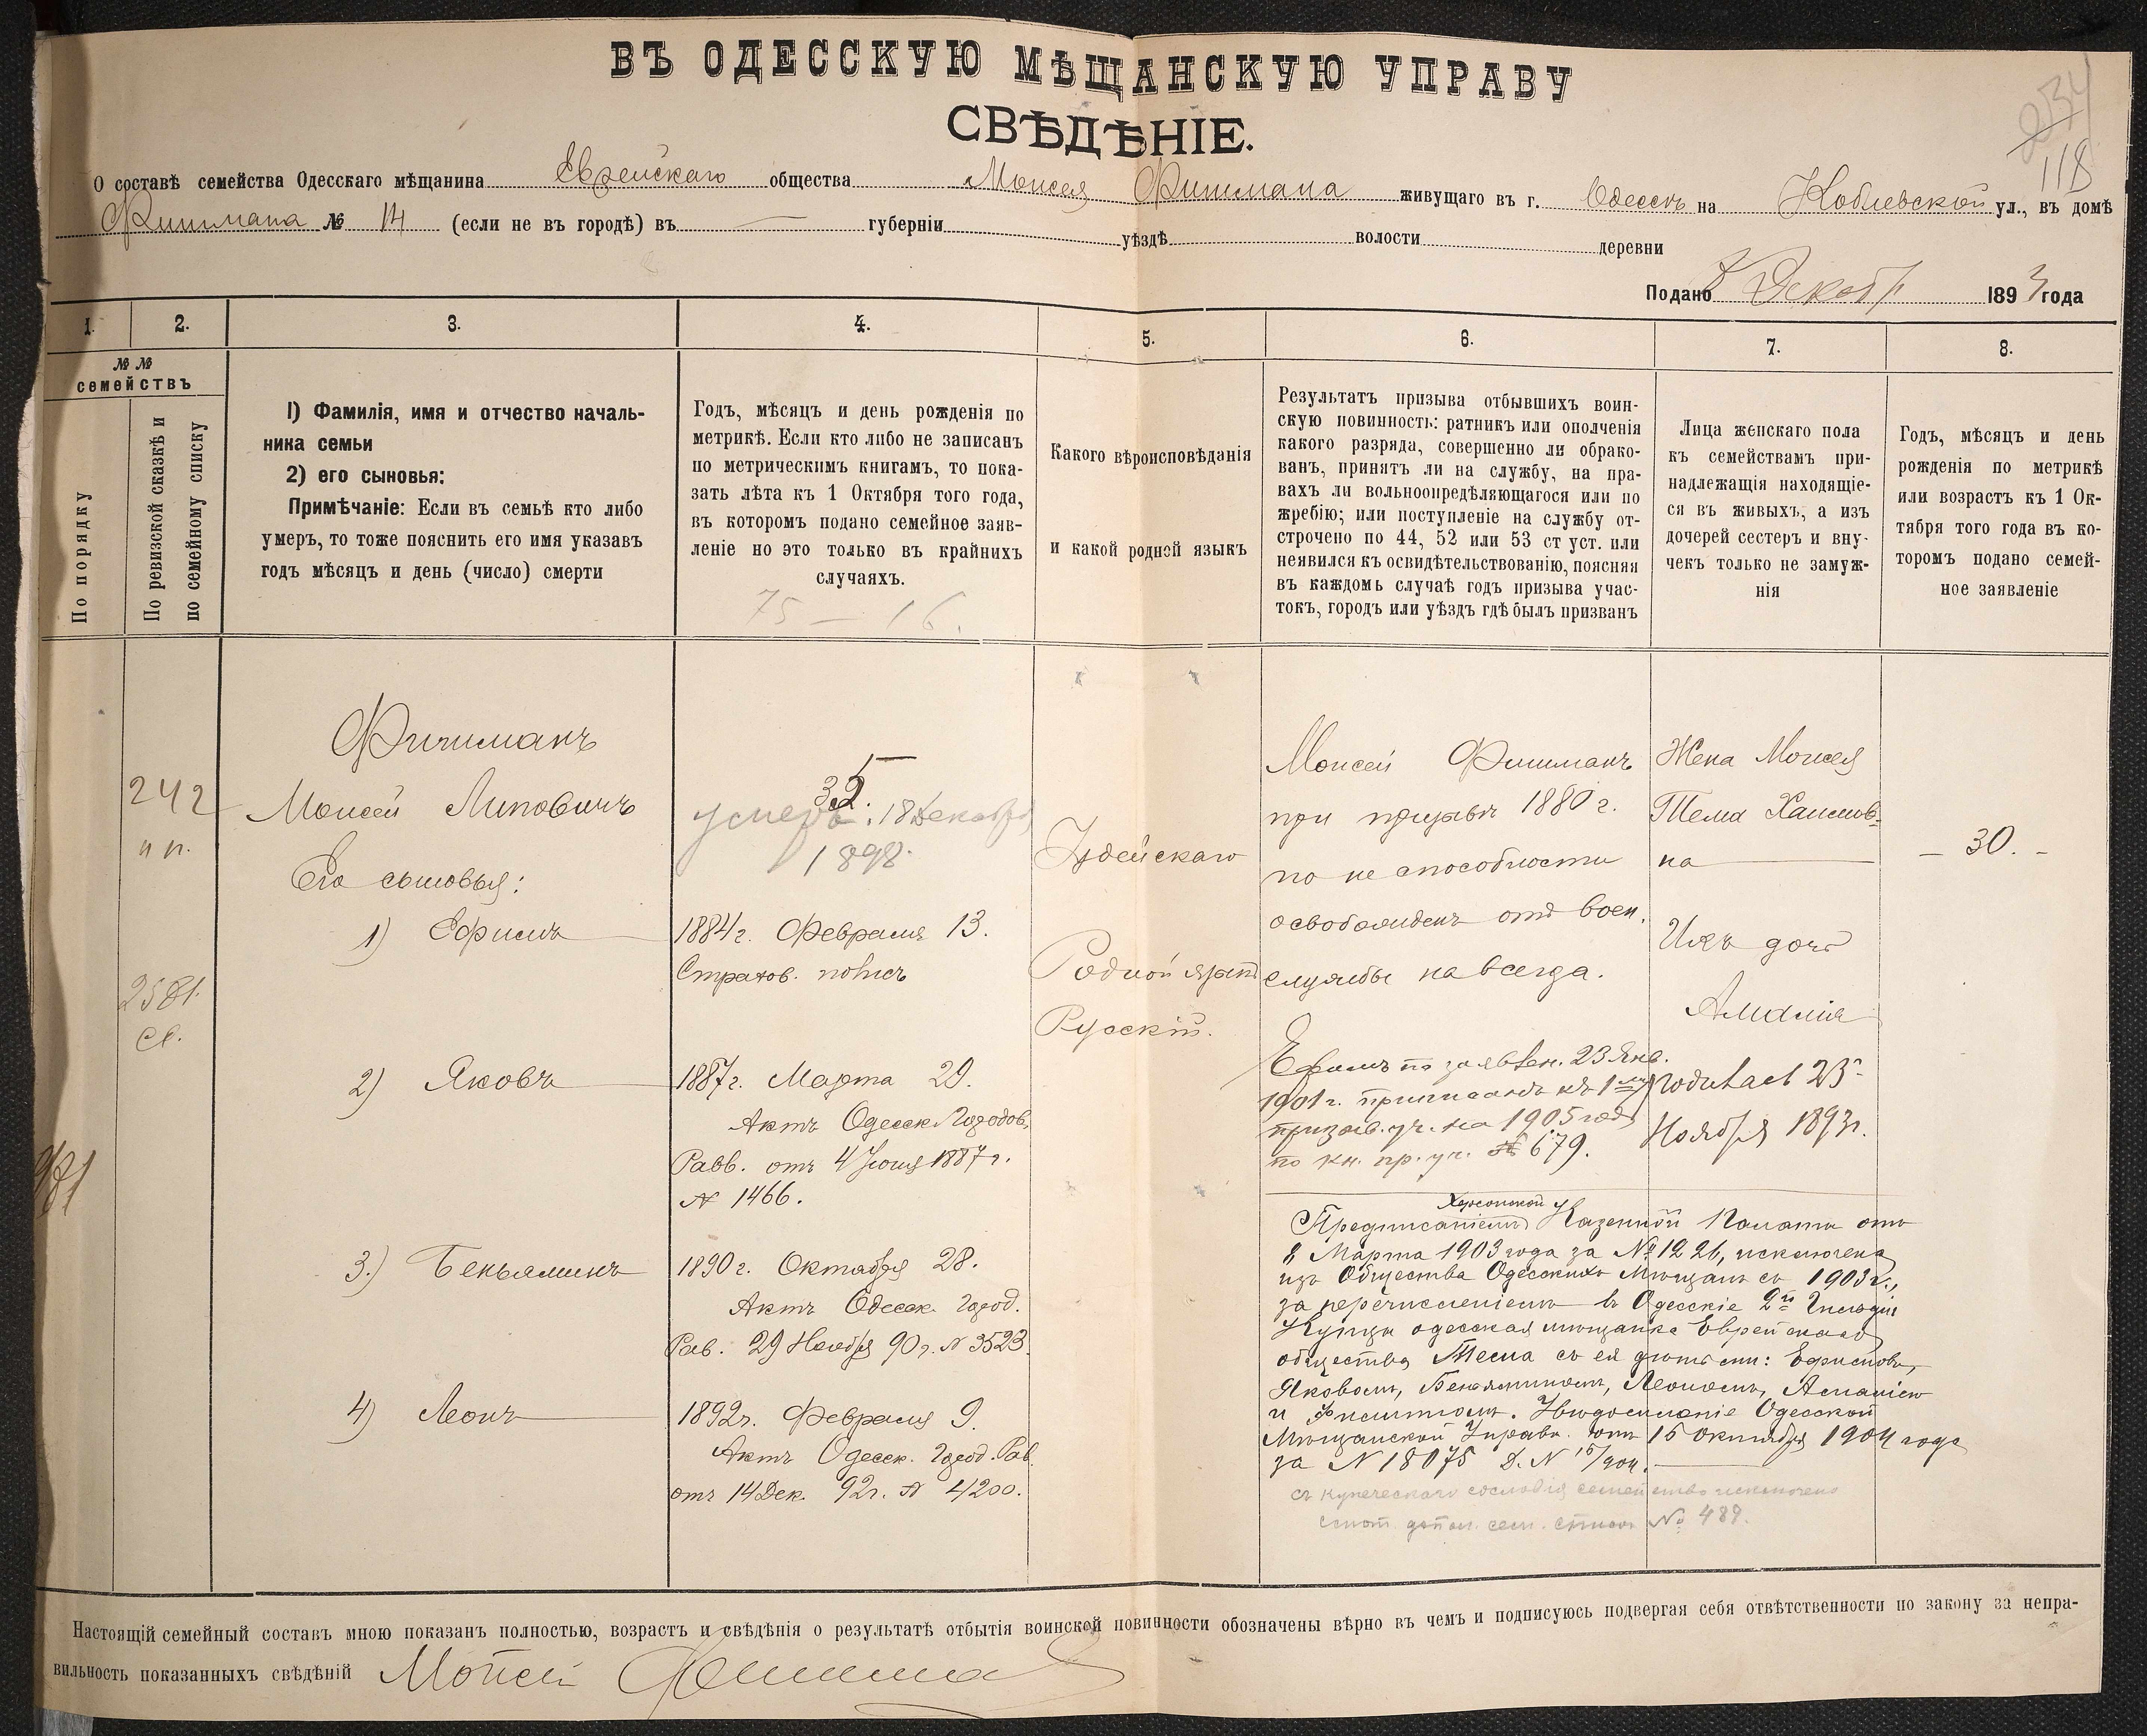 ВЪ ОДЕССКУЮ МѢЩАНСКУЮ УПРАВУ
СВѢДѢНІЕ.
234
118
О составѣ семейства Одесскаго мѣщанина Еврейскаго общества Моисея Фишмана живущаго въ г. Одессѣ на Коблевской ул., въ домѣ
Фишмана № 14 (если не въ городѣ) въ — губерніи уѣздѣ волости деревни
Подано Декаб 1893 года
1. 2. 3. 4. 5. 6. 7. 8.
№ №
семействъ
По порядку
По ревизской сказкѣ и
по семейному списку
1) Фамилія, имя и отчество началь-
ника семьи
2) его сыновья:
Примѣчаніе: Если въ семьѣ кто либо
умеръ, то тоже пояснить его имя указавъ
годъ мѣсяцъ и день (число) смерти
Годъ, мѣсяцъ и день рожденія по
метрикѣ. Если кто либо не записанъ
по метрическимъ книгамъ, то пока-
зать лѣта къ 1 Октября того года,
въ которомъ подано семейное заяв-
леніе но это только въ крайнихъ
случаяхъ.
75 — 16.
Какого вѣроисповѣданія
и какой родной языкъ
Результатъ призыва отбывшихъ воин-
скую повинность: ратникъ или ополченія
какого разряда, совершенно ли обрако-
ванъ, принятъ ли на службу, на пра-
вахъ ли вольноопредѣляющагося или по
жребію; или поступленіе на службу от-
строчено по 44, 52 или 53 ст уст. или
неявился къ освидѣтельствованію, поясняя
въ каждомъ случаѣ годъ призыва учас-
токъ, городъ или уѣздъ гдѣ былъ призванъ
Лица женскаго пола
къ семействамъ при-
надлежащія находящіе-
ся въ живыхъ, а изъ
дочерей сестеръ и вну-
чекъ только не замуж-
нія
Годъ, мѣсяцъ и день
рожденія по метрикѣ
или возрастъ къ 1 Ок-
тября того года въ ко-
торомъ подано семей-
ное заявленіе
242
2581
Фишманъ
Моисей Липовичъ
Его сыновья:
1) Ефимъ
2) Яковъ
3.) Беньяминъ
4) Леонъ
умеръ 18 Декабря
1898.
1884 г. Февраля 13.
Страхов. полисъ
1887 г. Марта 29.
Актъ Одесск. Городов.
Равв. отъ 4 Іюня 1887 г.
№ 1466.
1890 г. Октября 28.
Актъ Одесск. Город.
Рав. 29 Ноября 90 г. № 3523.
1892 г. Февраля 9.
Актъ Одесск. Город. Рав.
отъ 14 Дек. 92 г. № 4200.
Іудейскаго
Родной языкъ
Русскій.
Моисей Фишманъ
при призывѣ 1880 г.
по не способности
освобожденъ отъ воен.
службы навсегда.
Ефимъ по заявлен. 23 Янв.
1901 г. приписанъ къ 1му
призыв. уч. на 1905 годъ
по кн. пр. уч. № 679.
Предписаніемъ Херсонской Казенной Палаты отъ
8 Марта 1903 года за № 1226, исключена
изъ Общества Одесскихъ Мѣщанъ съ 1903 г.,
за перечисленіемъ въ Одесскіе 2й Гильдіи
Купцы одесская мѣщанка Еврейскаго
общества Тема съ ея дѣтьми: Ефимомъ,
Яковомъ, Беньяминомъ, Леономъ, Амаліею
и Филиппомъ. Увѣдомленіе Одесской
Мѣщанской Управы отъ 15 Октября 1904 года
за № 18075 Д. № 15/904.
съ купеческаго сословія семейство исключено
смот. допол. сем. списокъ № 489.
Жена Моисея
Тема Хаимов-
на
Ихъ дочь
Амалія
родилась 23
Ноября 1893 г.
— 30. —
Настоящій семейный составъ мною показанъ полностью, возрастъ и свѣдѣнія о результатѣ отбытія воинской повинности обозначены вѣрно въ чемъ и подписуюсь подвергая себя отвѣтственности по закону за непра-
вильность показанныхъ свѣдѣній Мойсей Фишман